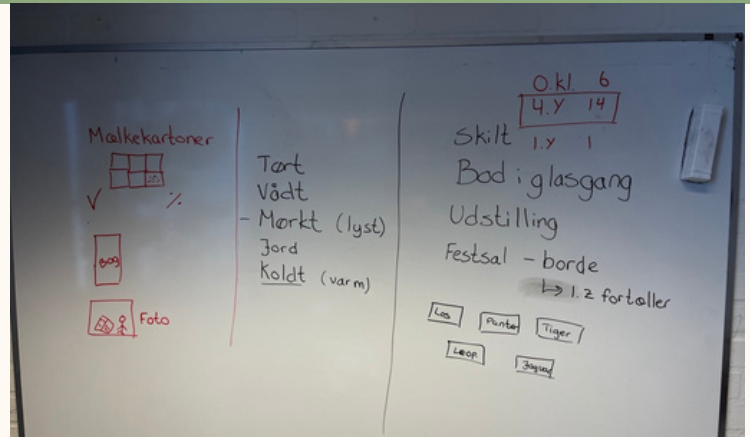 Mælkekartoner
✓ %
Bog
Foto
Tørt
Vådt
- Mørkt (lyst)
Jord
Koldt (varm)
0.kl. 6
4.Y 14
1.Y 1
Skilt
Bod i glasgang
Udstilling
Festsal - borde
↳ 1.Z fortæller
Los Panter Tiger
Leop. Jaguar